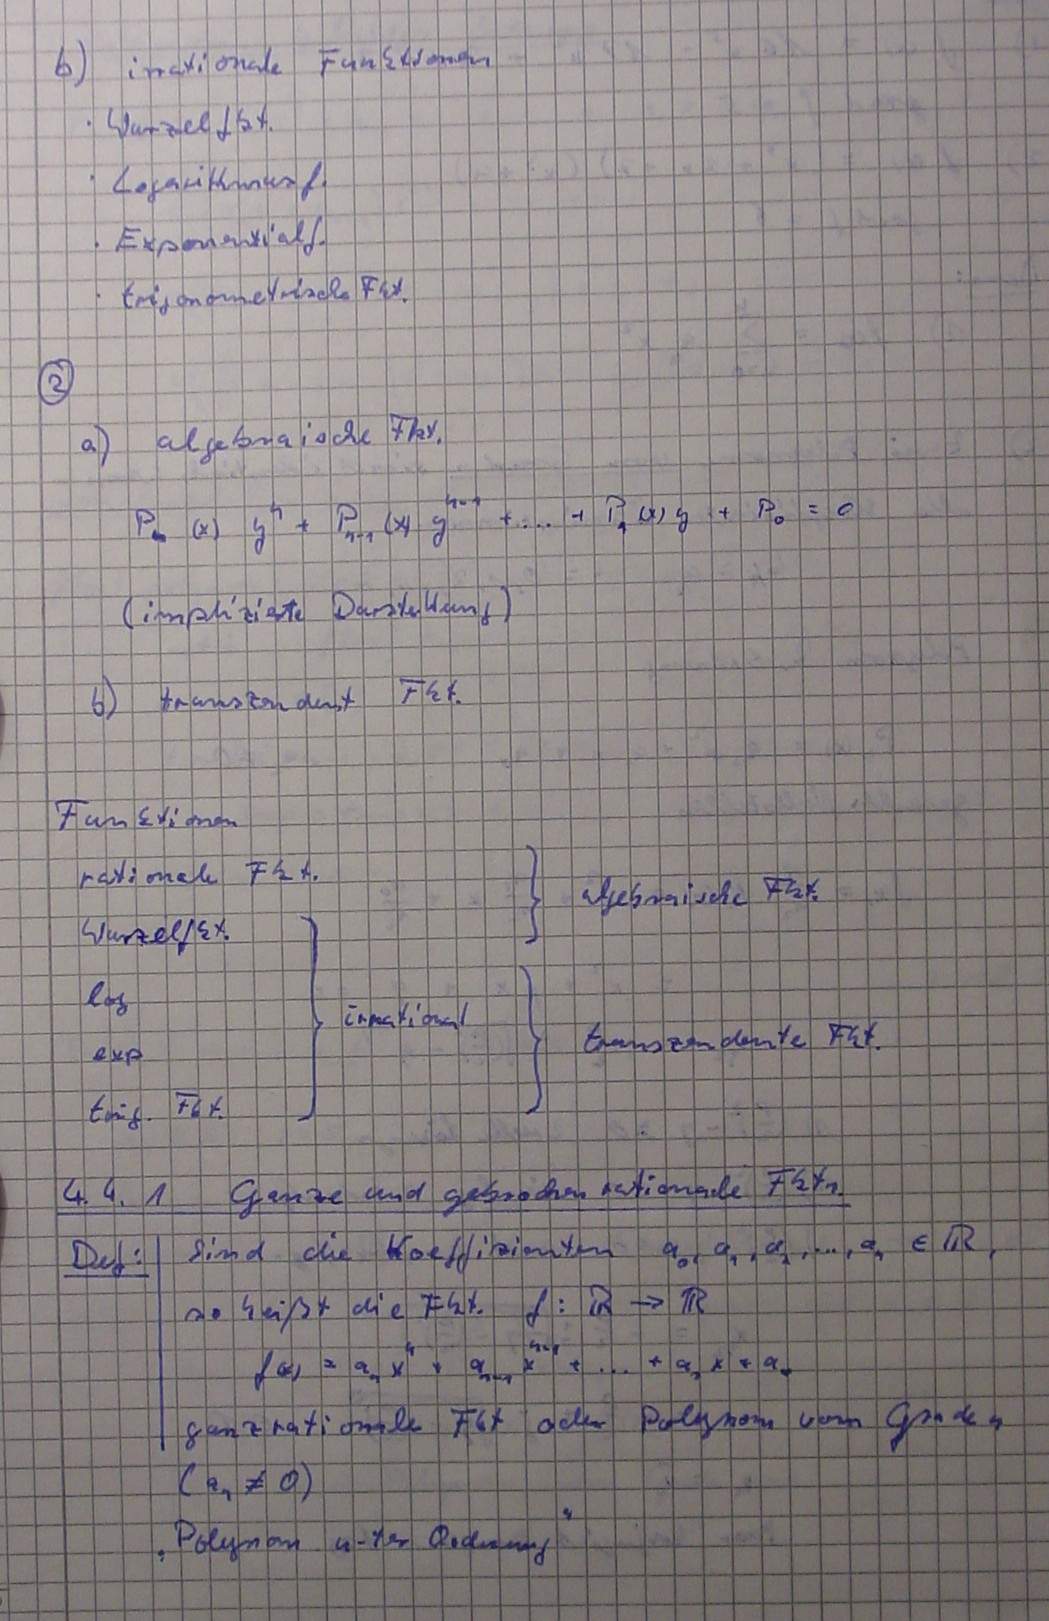 b) irrationale Funktionen
· Wurzelfkt.
· Logarithmusf.
· Exponentialf.
· trigonometrische Fkt.
②
a) algebraische Fkt.
Pₙ(x) yⁿ + Pₙ₋₁(x) yⁿ⁻¹ + .... + P₁(x) y + P₀ = 0
(implizierte Darstellung)
b) transzendent Fkt.
Funktionen
rationale Fkt. } algebraische Fkt.
Wurzelfkt.
log
} irrational
exp } transzendente Fkt.
trig. Fkt.
4.4.1 Ganze und gebrochen rationale Fktn.
Def: Sind die Koeffizienten a₀, a₁, a₂, ..., aₙ ∈ ℝ,
so heißt die Fkt. f: ℝ → ℝ
f(x) = aₙxⁿ + aₙ₋₁xⁿ⁻¹ + ... + a₁x + a₀
ganzrationale Fkt oder Polynom vom Grade n
(aₙ ≠ 0)
„Polynom n-ter Ordnung"